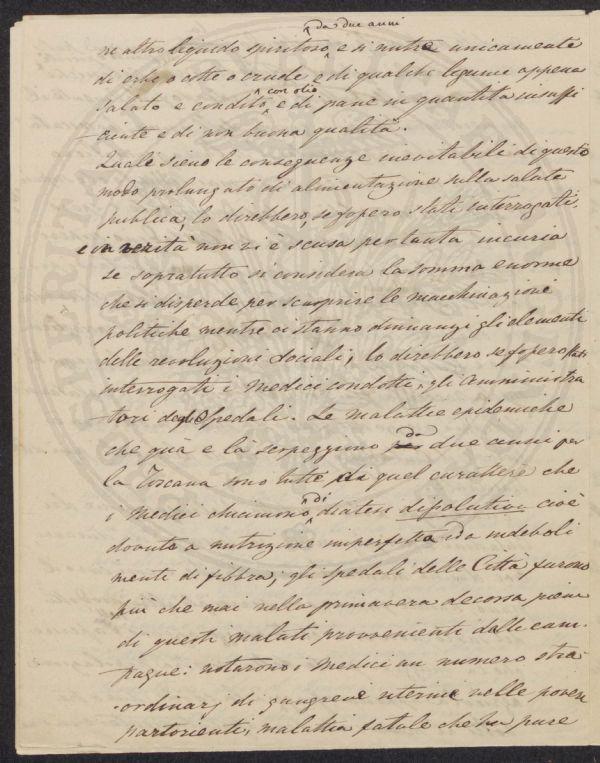 da due anni
ne altro liquido spiritoso, e si nutre unicamente
di erbe o cotte o crude e di qualche legume appena
con olio
salato e condito, e di pane in quantità insuffi
ciente e di non buona qualità.
Quali sieno le conseguenze inevitabili di questo
modo prolungato di alimentazione sulla salute
pubblica, lo direbbero, se fopero stati interrogati,
e in verità non vi è scusa per tanta incuria
se sopratutto si considera la somma enorme
che si disperde per scuoprire le macchinazione
politiche mentre ci stanno dinnanzi gli elementi
delle revoluzioni sociali, lo direbbero se fopero stati
interrogati i Medici condotti, gli Amministra
tori degli Spedali. Le malattie epidemiche
che quà e là serpeggiono da due anni per
la Toscana sono tutte di quel carattere che
i Medici chiamono di diatesi dipolutiva cioè
dovuto a nutrizione imperfetta e da indeboli
mento di fibbra; gli spedali delle Città furono
più che mai nella primavera decorsa pieni
di questi malati provenienti dalle cam-
pagne: notarono i Medici un numero stra-
ordinarj di gangrene uterine nelle povere
partorienti, malattia fatale che ha pure